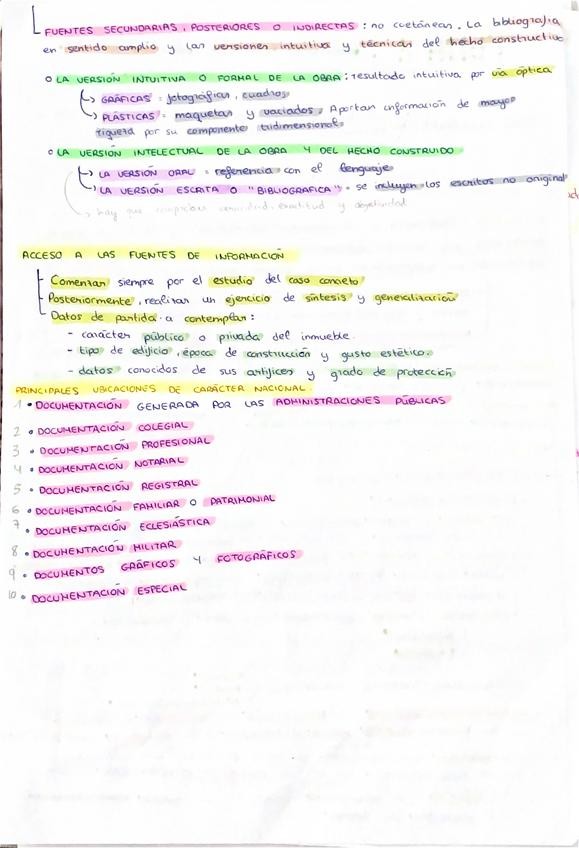 FUENTES SECUNDARIAS, POSTERIORES O INDIRECTAS : no coetáneas. La bibliografía
en sentido amplio y las versiones intuitiva y técnicas del hecho constructivo
o LA VERSIÓN INTUITIVA O FORMAL DE LA OBRA : resultado intuitivo por vía óptica
↳ GRÁFICAS : fotografías, cuadros
↳ PLÁSTICAS : maquetas y vaciados. Aportan información de mayor
riqueza por su componente tridimensional.
o LA VERSIÓN INTELECTUAL DE LA OBRA Y DEL HECHO CONSTRUIDO
↳ LA VERSIÓN ORAL : referencia con el lenguaje
↳ LA VERSIÓN ESCRITA O "BIBLIOGRÁFICA" : se incluyen los escritos no original
↳ hay que comprobar veracidad, exactitud y objetividad
ACCESO A LAS FUENTES DE INFORMACIÓN
Comenzar siempre por el estudio del caso concreto
Posteriormente, realizar un ejercicio de síntesis y generalización
Datos de partida a contemplar :
- carácter público o privado del inmueble.
- tipo de edificio, época de construcción y gusto estético.
- datos conocidos de sus artífices y grado de protección
PRINCIPALES UBICACIONES DE CARÁCTER NACIONAL.
1 • DOCUMENTACIÓN GENERADA POR LAS ADMINISTRACIONES PÚBLICAS
2 • DOCUMENTACIÓN COLEGIAL
3 • DOCUMENTACIÓN PROFESIONAL
4 • DOCUMENTACIÓN NOTARIAL
5 • DOCUMENTACIÓN REGISTRAL
6 • DOCUMENTACIÓN FAMILIAR O PATRIMONIAL
7 • DOCUMENTACIÓN ECLESIÁSTICA
8 • DOCUMENTACIÓN MILITAR
9 • DOCUMENTOS GRÁFICOS Y FOTOGRÁFICOS
10 • DOCUMENTACIÓN ESPECIAL